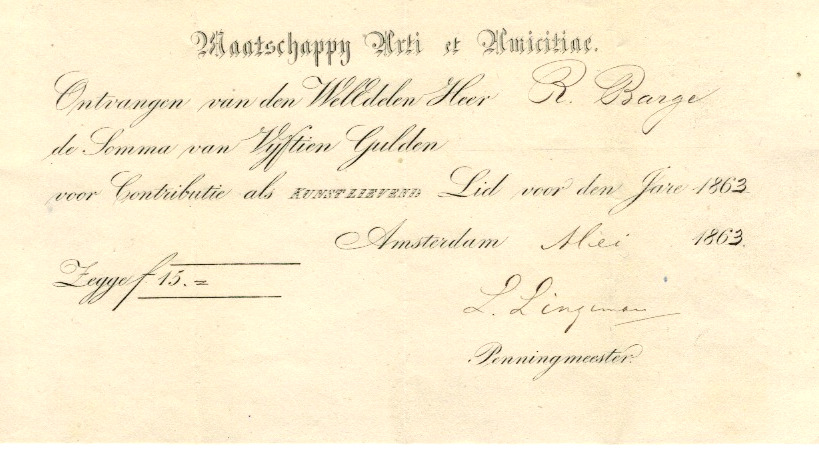 Maatschappy Arti et Amicitiae.
Ontvangen van den WelEdelen Heer R. Barge
de Somma van Vyftien Gulden
voor Contributie als KUNSTLIEVEND Lid voor den Jare 1863
Amsterdam Mei 1863.
Zegge f 15.=
L. Lingeman
Penningmeester.